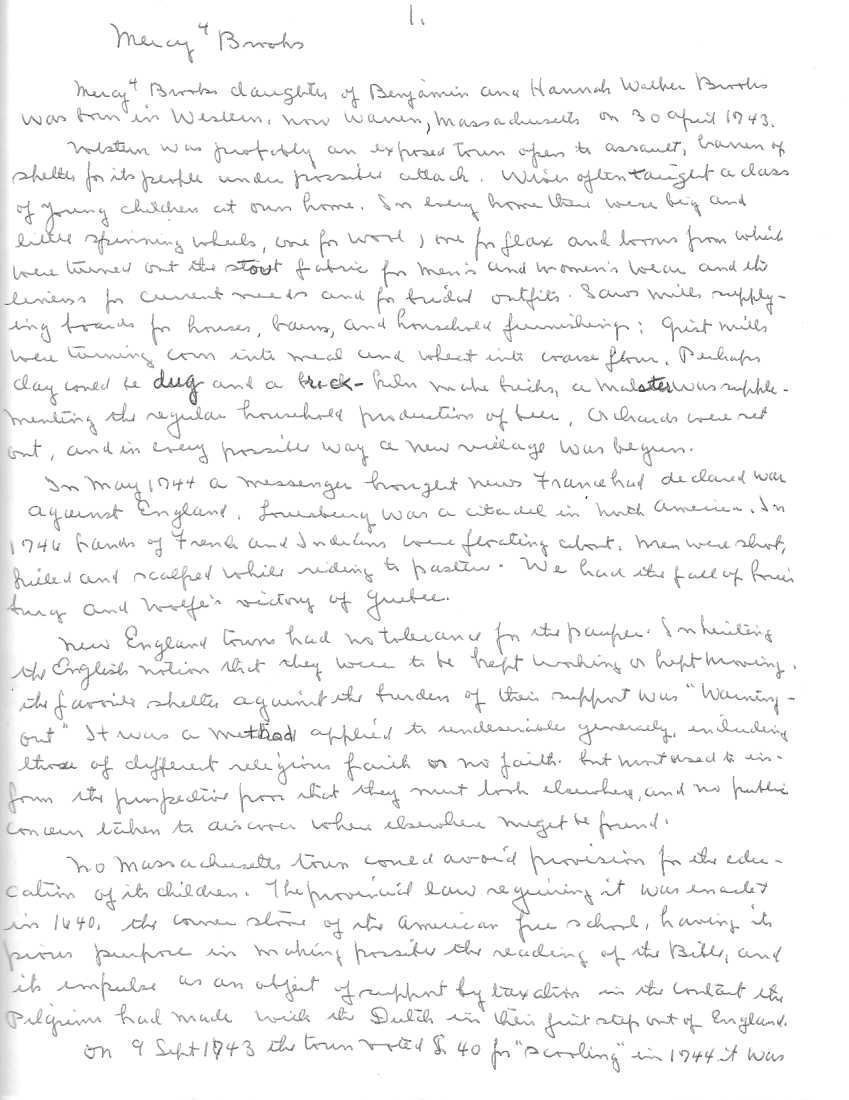 1.
Mercy⁴ Brooks
Mercy⁴ Brooks daughter of Benjamin and Hannah Walker Brooks
was born in Western, now Warren, Massachusetts on 30 April 1743.
Western was probably an exposed town open to assault, barren of
shelter for its people under possible attack. Wives often taught a class
of young children at own home. In every home there were big and
little spinning wheels, one for wool, one for flax and looms from which
were turned out the stout fabric for men's and women's wear and the
linens for current needs and for bridal outfits. Saws mills supply-
ing boards for houses, barns, and household furnishings; Grist mills
were turning corn into meal and wheat into coarse flour. Perhaps
clay could be dug and a brick-kiln make bricks, a malster was supple-
menting the regular household production of beer, Orchards were set
out, and in every possible way a new village was begun.
In May 1744 a messenger brought news France had declared war
against England. Louisburg was a citadel in North America. In
1746 bands of French and Indians were floating about. Men were shot,
killed and scalped while riding to pasture. We had the fall of Louis
burg and Wolfe's victory of Quebec.
New England towns had no tolerance for the pauper. Inheriting
the English notion that they were to be kept working or kept moving,
the favorite shelter against the burden of their support was "Warning-
out" It was a method applied to undesirable generally, including
those of different religious faith or no faith. but most used to in-
form the prospective poor that they must look elsewhere, and no public
concern taken to discover where elsewhere might be found.
No Massachusetts town could avoid provision for the edu-
cation of its children. The provincial law requiring it was enacted
in 1640, the corner stone of the American free school, having its
pious purpose in making possible the reading of the Bible, and
its impulse as an object of support by taxation in the contact the
Pilgrims had made with the Dutch in their first step out of England.
On 9 Sept 1743 the town voted £ 40 for "scooling" in 1744 it was